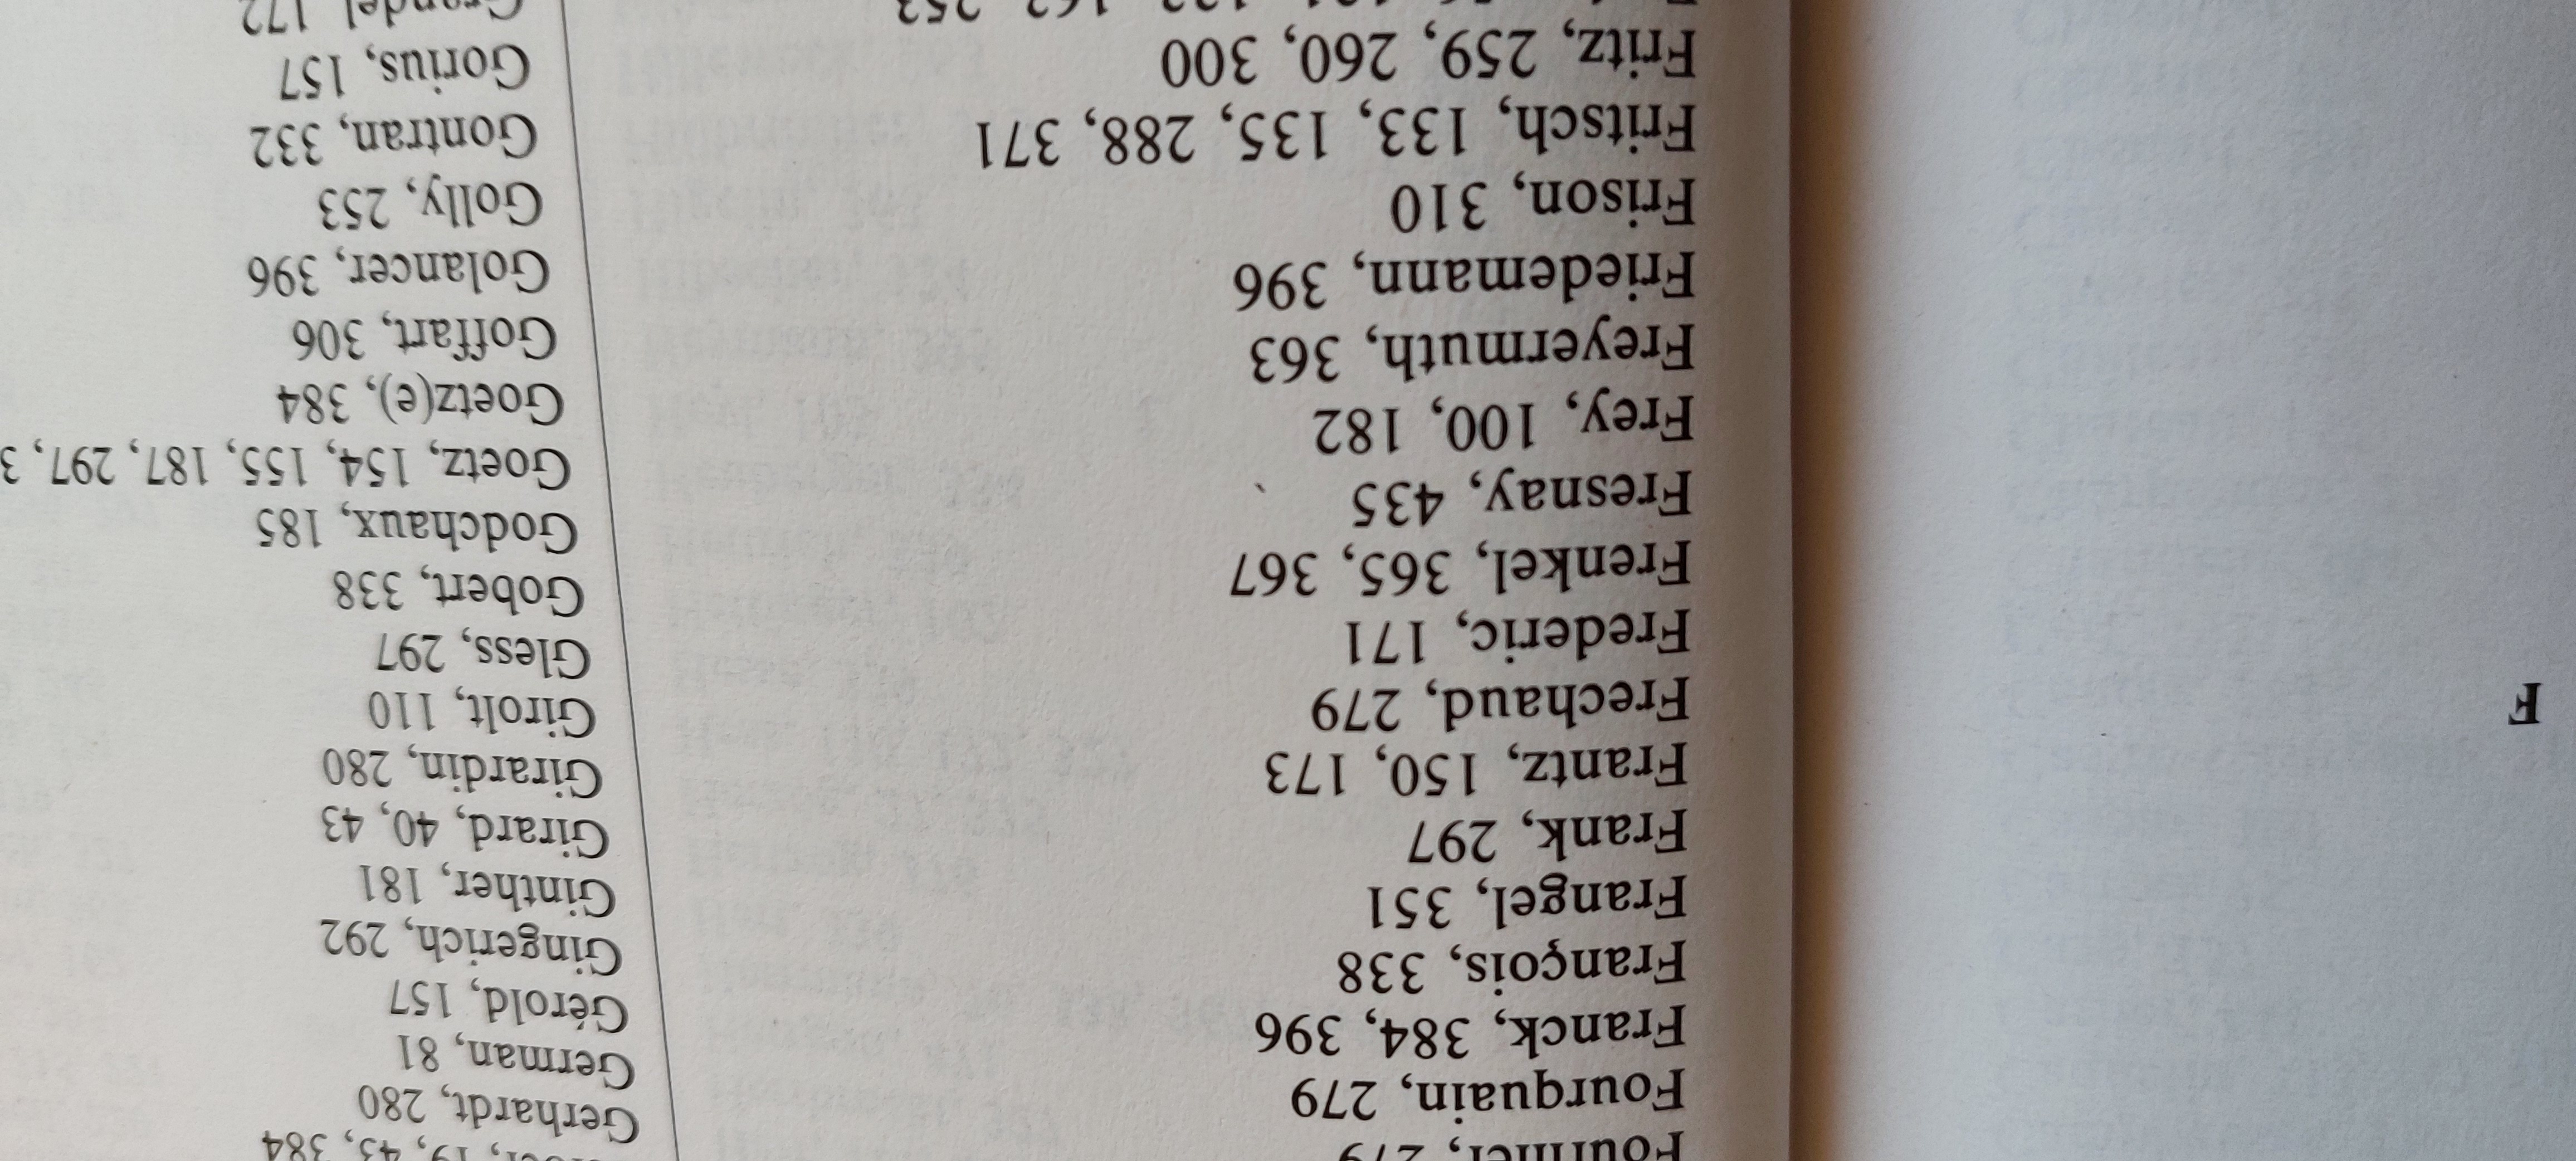 F
Fournier, 279
Fourquain, 279
Franck, 384, 396
François, 338
Frangel, 351
Frank, 297
Frantz, 150, 173
Frechaud, 279
Frederic, 171
Frenkel, 365, 367
Fresnay, 435
Frey, 100, 182
Freyermuth, 363
Friedemann, 396
Frison, 310
Fritsch, 133, 135, 288, 371
Fritz, 259, 260, 300
253
19, 43, 384
Gerhardt, 280
German, 81
Gérold, 157
Gingerich, 292
Ginther, 181
Girard, 40, 43
Girardin, 280
Girolt, 110
Gless, 297
Gobert, 338
Godchaux, 185
Goetz, 154, 155, 187, 297, 3
Goetz(e), 384
Goffart, 306
Golancer, 396
Golly, 253
Gontran, 332
Gorius, 157
172